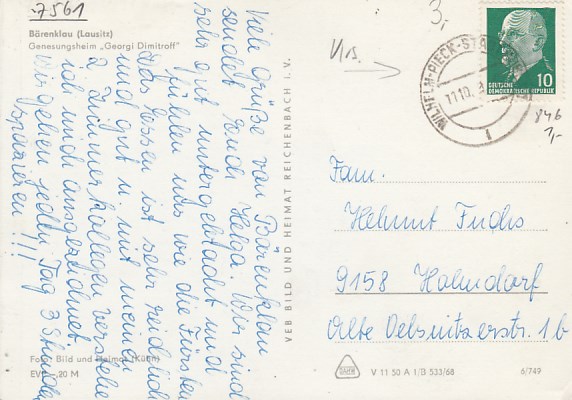 7561
Bärenklau (Lausitz)
Genesungsheim „Georgi Dimitroff"
Viele Grüße von Bärenklau
sendet Euch Helga. Wir sind
sehr gut untergebracht und
fühlen uns wie die Fürsten
das Essen ist sehr reichlich
und gut u. mit meinen
2 Zimmerkollegen verstehe
ich mich ausgezeichnet
wir gehen jeden Tag 3 Stunden
spazieren !!!
Foto: Bild und Heimat (Kühn)
EVP -,20 M
VEB BILD UND HEIMAT REICHENBACH I. V.
3,-
WILHELM-PIECK-STADT
11.10.
10
DEUTSCHE
DEMOKRATISCHE REPUBLIK
846
1,-
Fam.
Helmut Fuchs
9158 Hohndorf
Alte Oelsnitzerstr. 1b
V 11 50 A 1/B 533/68
6/749